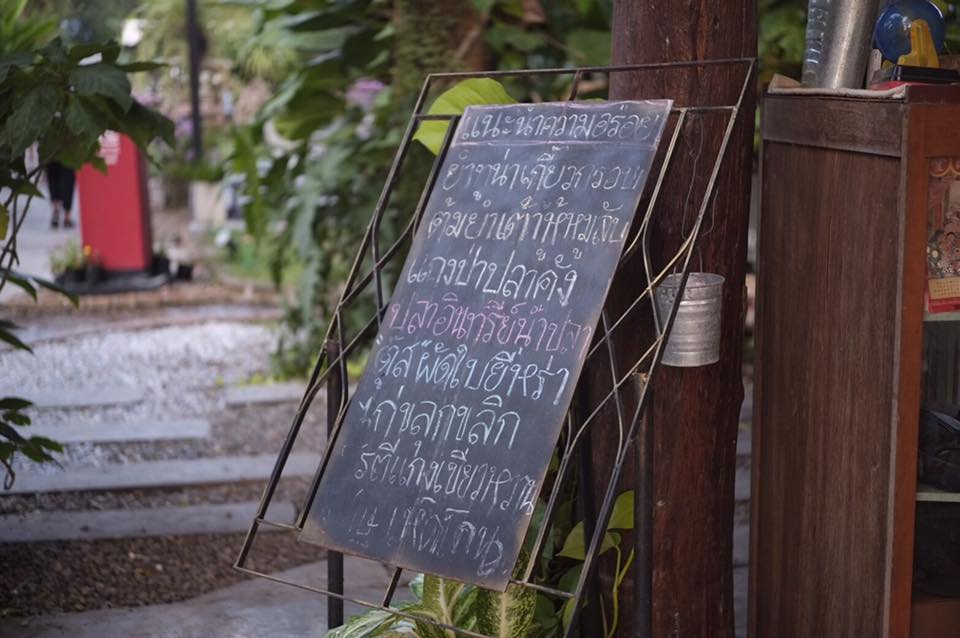 แนะนำความอร่อย
ยำถั่วพูน่าเกี๊ยวกรอบ
ต้มยำเต้าหู้หมูสับ
แกงป่าปลาคัง
ปลาอินทรีย์น้ำปลา
ผัดใบยี่หร่า
ไก่ขลุกขลิก
โรตีแกงเขียวหวาน